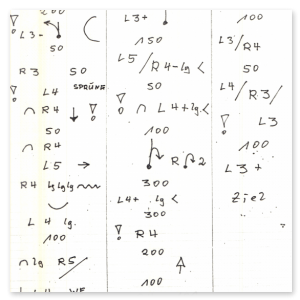 200
L3-
50
R3 50
L4 SPRÜNGE
∩ R4 ↓
50
∩ R4
L5 →
R4 lg lg lg
L4 lg.
100
∩ lg R5/
L3+
150
L5/R4-lg <
50
∩ L4+lg. <
100
R ∩ 2
300
L4+ lg <
300
R4
200
100
100
L3/R4
50
L4/R3/
L3
100
L3+
Ziel